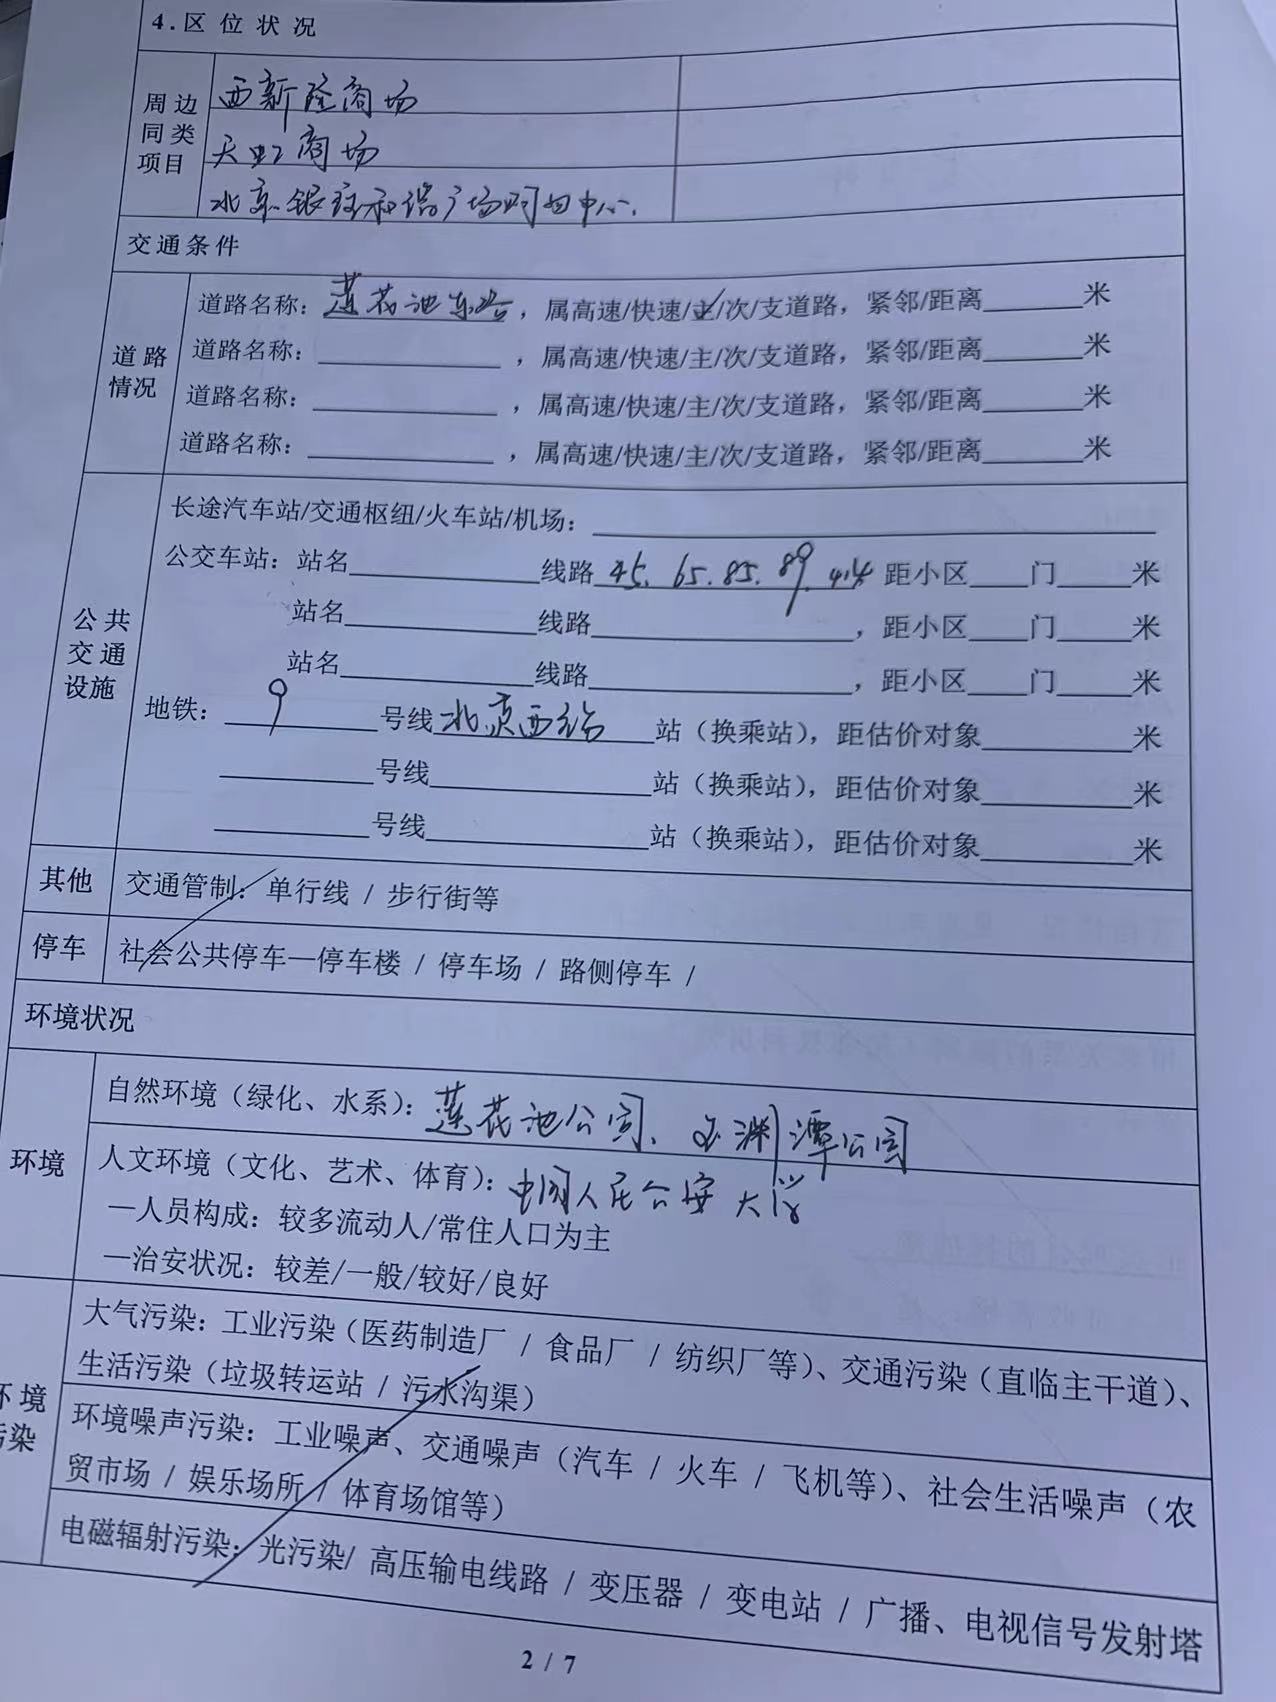 4.区位状况
周边同类项目
西新隆商场
天虹商场
北京银座和谐广场购物中心.
交通条件
道路情况
道路名称：莲花池东路，属高速/快速/主/次/支道路，紧邻/距离______米
道路名称：____________，属高速/快速/主/次/支道路，紧邻/距离______米
道路名称：____________，属高速/快速/主/次/支道路，紧邻/距离______米
道路名称：____________，属高速/快速/主/次/支道路，紧邻/距离______米
公共交通设施
长途汽车站/交通枢纽/火车站/机场：____________
公交车站：站名____________线路45. 65. 85. 89. 414 距小区____门_____米
站名____________线路________________，距小区____门_____米
站名____________线路________________，距小区____门_____米
地铁：9号线北京西站站（换乘站），距估价对象_________米
_________号线____________站（换乘站），距估价对象_________米
_________号线____________站（换乘站），距估价对象_________米
其他 交通管制：单行线 / 步行街等
停车 社会公共停车—停车楼 / 停车场 / 路侧停车 /
环境状况
环境
自然环境（绿化、水系）：莲花池公园、玉渊潭公园
人文环境（文化、艺术、体育）：中国人民公安大学
—人员构成：较多流动人/常住人口为主
—治安状况：较差/一般/较好/良好
环境污染
大气污染：工业污染（医药制造厂 / 食品厂 / 纺织厂等）、交通污染（直临主干道）、
生活污染（垃圾转运站 / 污水沟渠）
环境噪声污染：工业噪声、交通噪声（汽车 / 火车 / 飞机等）、社会生活噪声（农
贸市场 / 娱乐场所 / 体育场馆等）
电磁辐射污染：光污染/ 高压输电线路 / 变压器 / 变电站 / 广播、电视信号发射塔
2 / 7